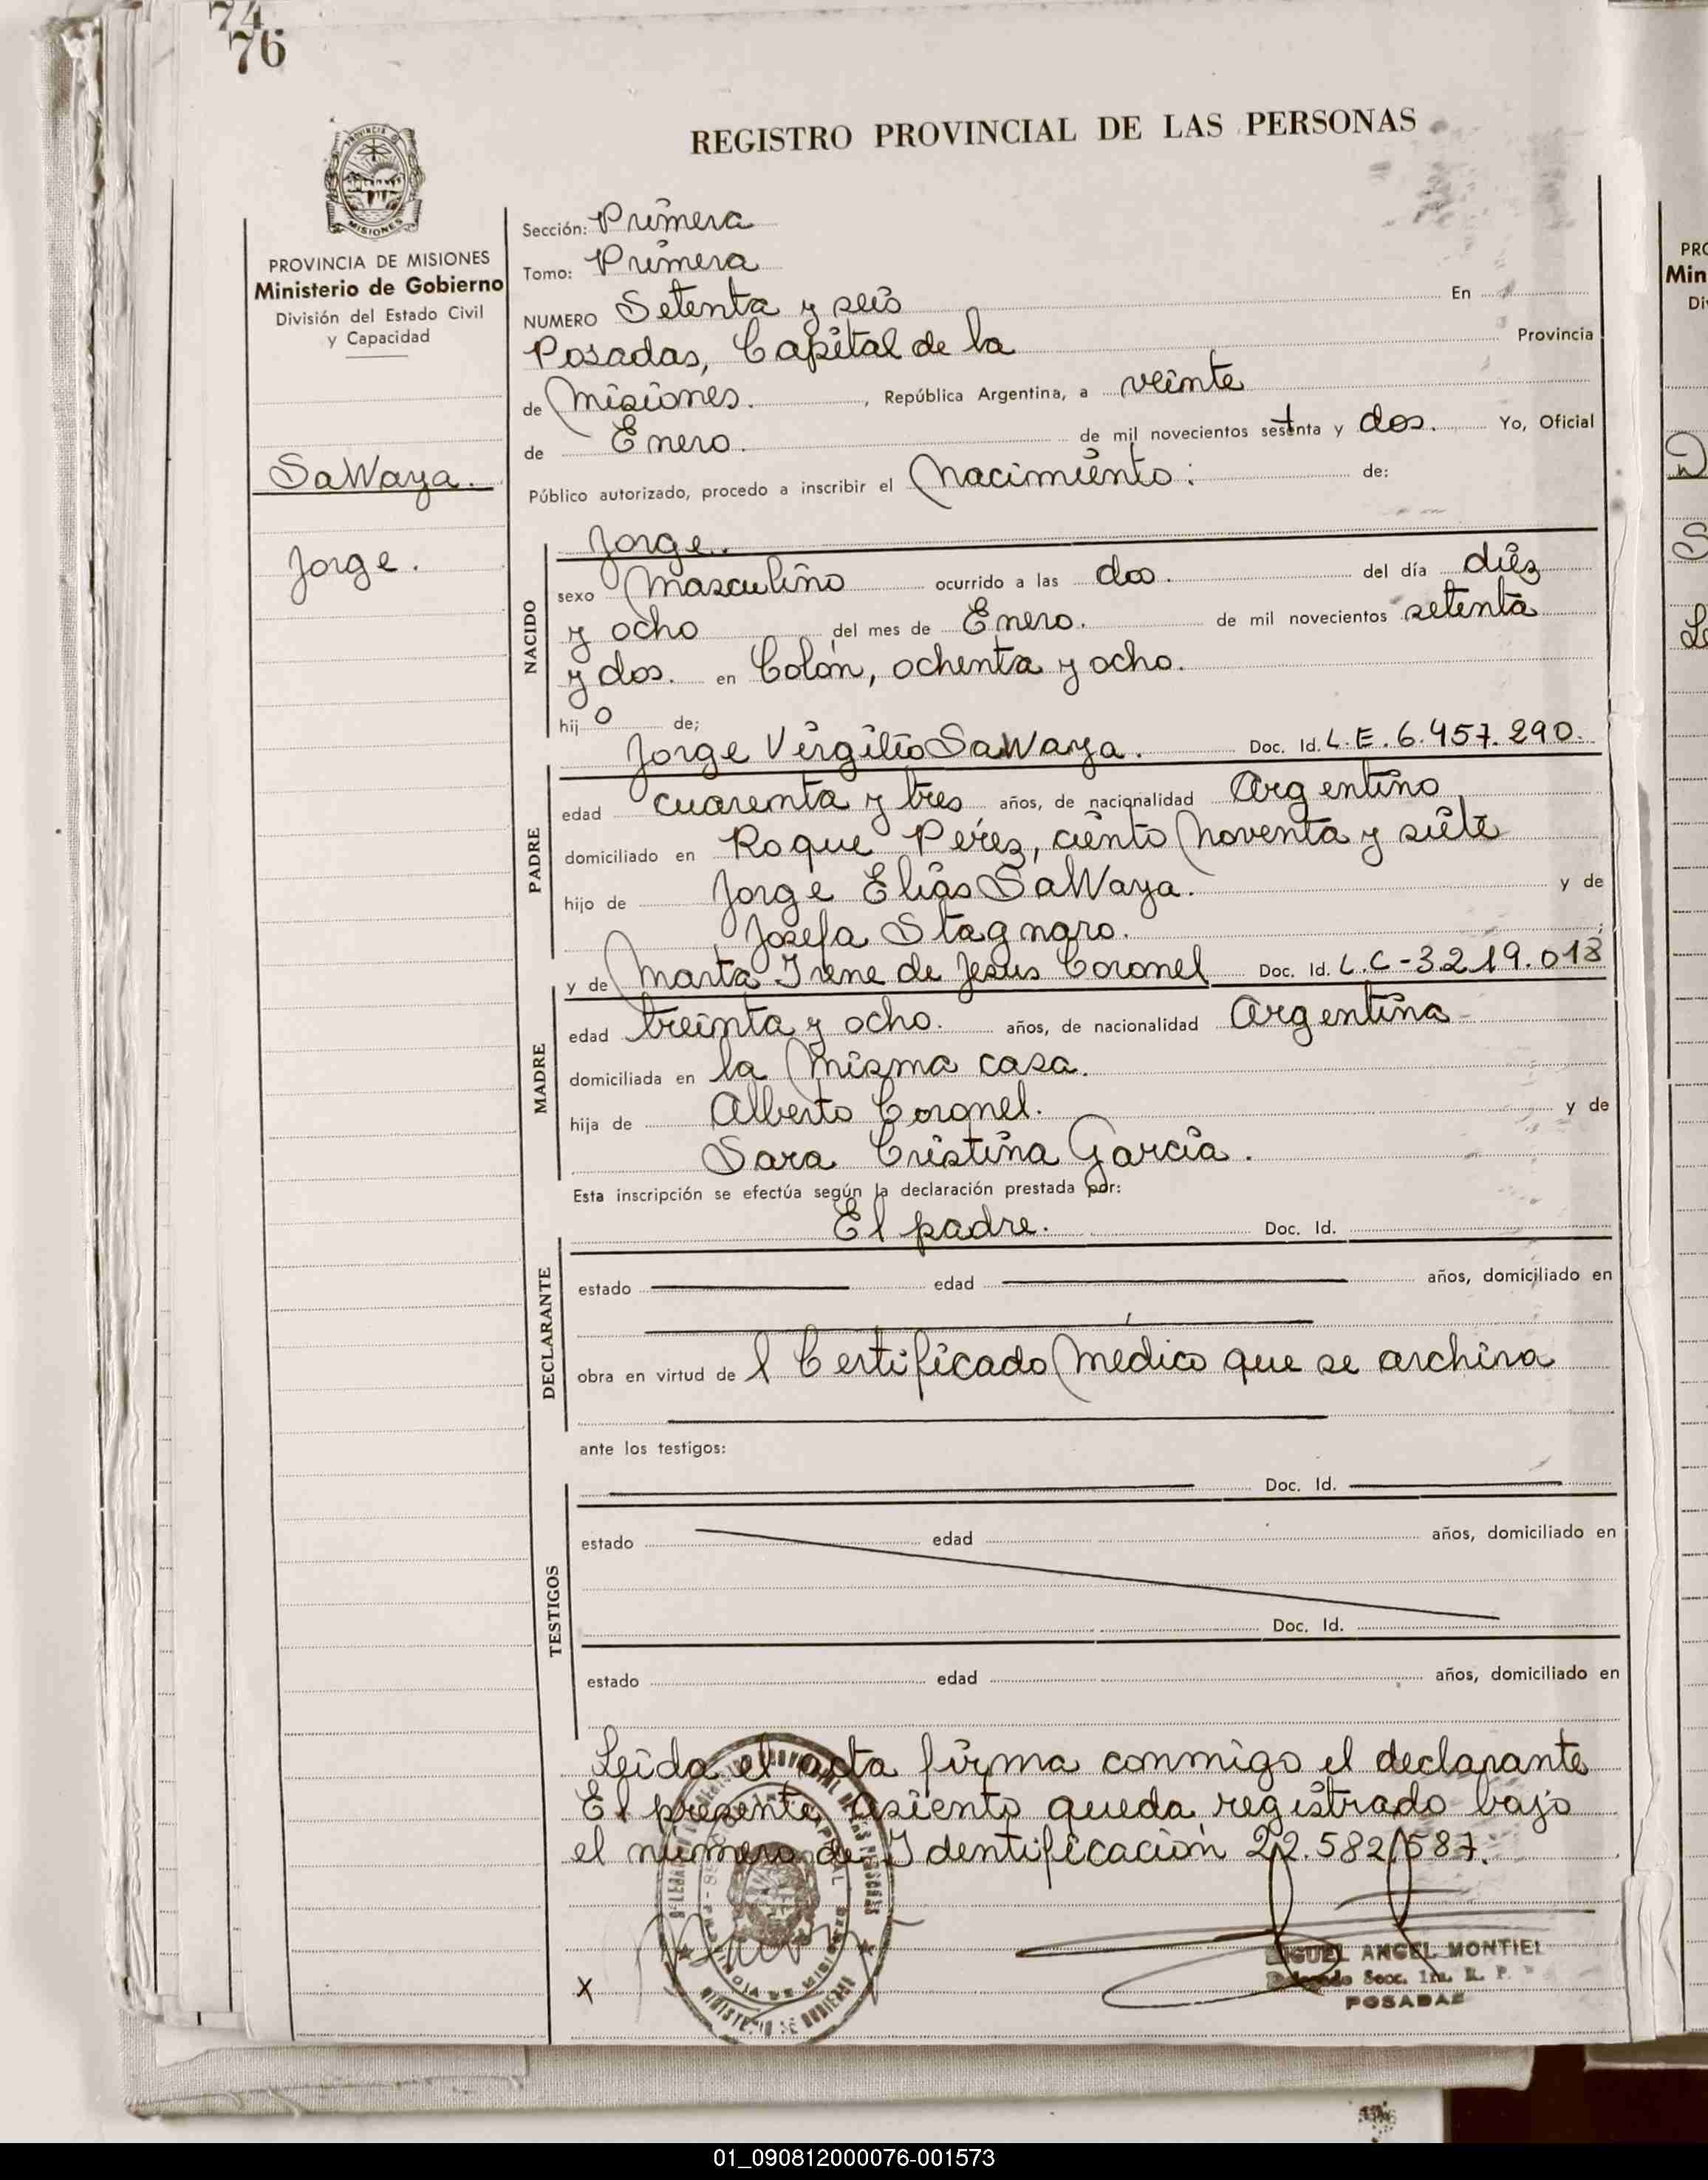 74
76
REGISTRO PROVINCIAL DE LAS PERSONAS
PROVINCIA
MISIONES
PROVINCIA DE MISIONES
Ministerio de Gobierno
División del Estado Civil
y Capacidad
SaWaya.
Jorge.
Sección: Primera
Tomo: Primera
NUMERO Setenta y seis En
Posadas, Capital de la Provincia
de Misiones. , República Argentina, a veinte
de Enero. de mil novecientos setenta y dos. Yo, Oficial
Público autorizado, procedo a inscribir el Nacimiento: de:
Jorge.
NACIDO
sexo Masculino ocurrido a las dos. del día diez
y ocho del mes de Enero. de mil novecientos setenta
y dos. en Colón, ochenta y ocho.
hijo de;
Jorge Virgilio SaWaya. Doc. Id. L.E. 6.457.290.
PADRE
edad cuarenta y tres años, de nacionalidad Argentino
domiciliado en Roque Peréz, ciento noventa y siete
hijo de Jorge Elías SaWaya. y de
Josefa Stagnaro.
y de Marta Irene de Jesús Coronel Doc. Id. L.C-3.219.013
MADRE
edad treinta y ocho. años, de nacionalidad Argentina
domiciliada en la misma casa.
hija de Alberto Coronel. y de
Sara Cristina García.
Esta inscripción se efectúa según la declaración prestada por:
El padre. Doc. Id.
DECLARANTE
estado edad años, domiciliado en
obra en virtud de l Certificado Médico que se archiva
ante los testigos:
Doc. Id.
TESTIGOS
estado edad años, domiciliado en
Doc. Id.
estado edad años, domiciliado en
Leída el acta firma conmigo el declarante
El presente asiento queda registrado bajo
el número de Identificación 22.582.587.
x
MIGUEL ANGEL MONTIEL
Delegado Secc. 1ra. R. P.
POSADAS
PRO
Min
Di
01_090812000076-001573